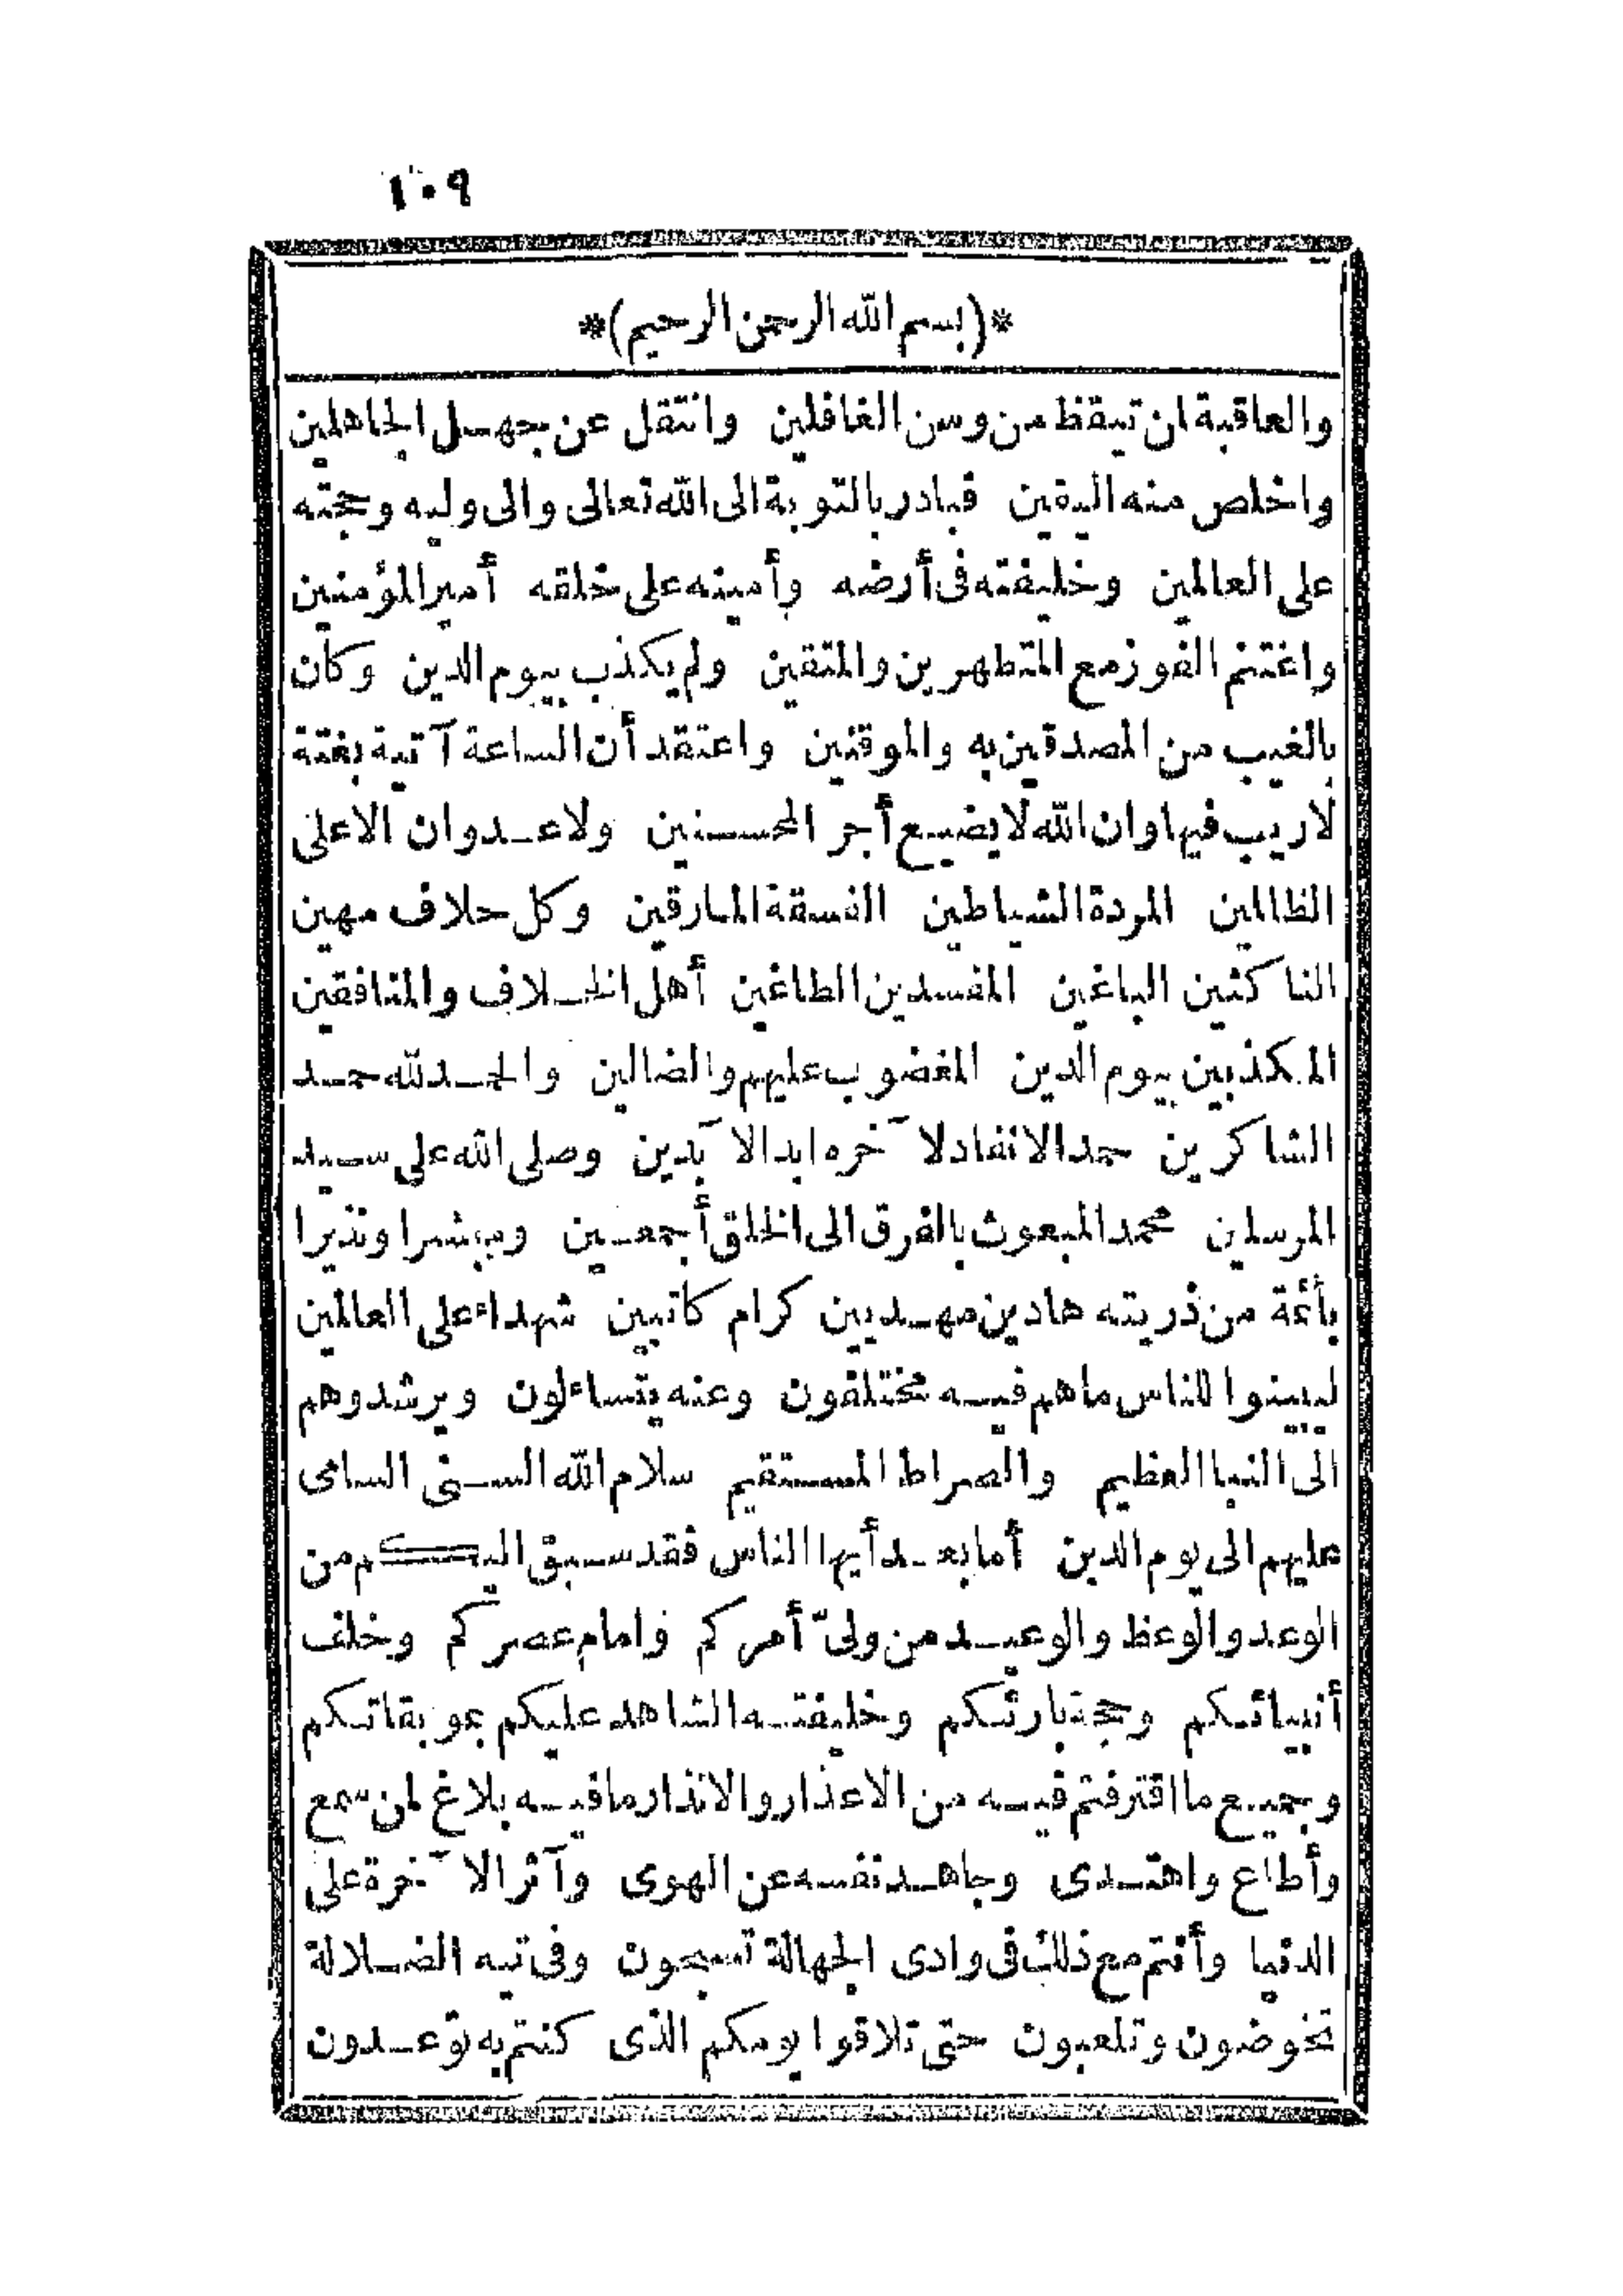 ١٠٩
*(بسم الله الرحمن الرحيم)*
والعاقبة ان تيقظ من وسن الغافلين وانتقل عن جهل الجاهلين
واخلص منه اليقين فبادر بالتوبة الى الله تعالى والى وليه وحجته
على العالمين وخليفته فى أرضه وأمينه على خلقه أمير المؤمنين
واغتنم الفوز مع المتطهرين والمتقين ولم يكذب بيوم الدين وكان
بالغيب من المصدقين به والموقنين واعتقد أن الساعة آتية بغتة
لاريب فيها وان الله لا يضيع أجر المحسنين ولا عدوان الا على
الظالمين المردة الشياطين الفسقة المارقين وكل حلاف مهين
الناكثين الباغين المفسدين الطاغين أهل الخلاف والمنافقين
المكذبين بيوم الدين المغضوب عليهم والضالين والحمد لله حمد
الشاكرين حمدا لا نفاد لآخره ابد الآبدين وصلى الله على سيد
المرسلين محمد المبعوث بالفرق الى الخلق أجمعين ومبشرا ونذيرا
بأئمة من ذريته هادين مهديين كرام كاتبين شهداء على العالمين
ليبينوا للناس ما هم فيه مختلفون وعنه يتساءلون ويرشدوهم
الى النبا العظيم والصراط المستقيم سلام الله السنى السامى
عليهم الى يوم الدين أما بعد أيها الناس فقد سبق اليكم من
الوعد والوعظ والوعيد من ولىّ أمركم وامام عصركم وخلف
أنبيائكم وحجة بارئكم وخليفته الشاهد عليكم بموبقاتكم
وجميع ما اقترفتم فيه من الاعذار والانذار ما فيه بلاغ لمن سمع
وأطاع واهتدى وجاهد نفسه عن الهوى وآثر الآخرة على
الدنيا وأنتم مع ذلك فى وادى الجهالة تسبحون وفى تيه الضلالة
تخوضون وتلعبون حتى تلاقوا يومكم الذى كنتم به توعدون